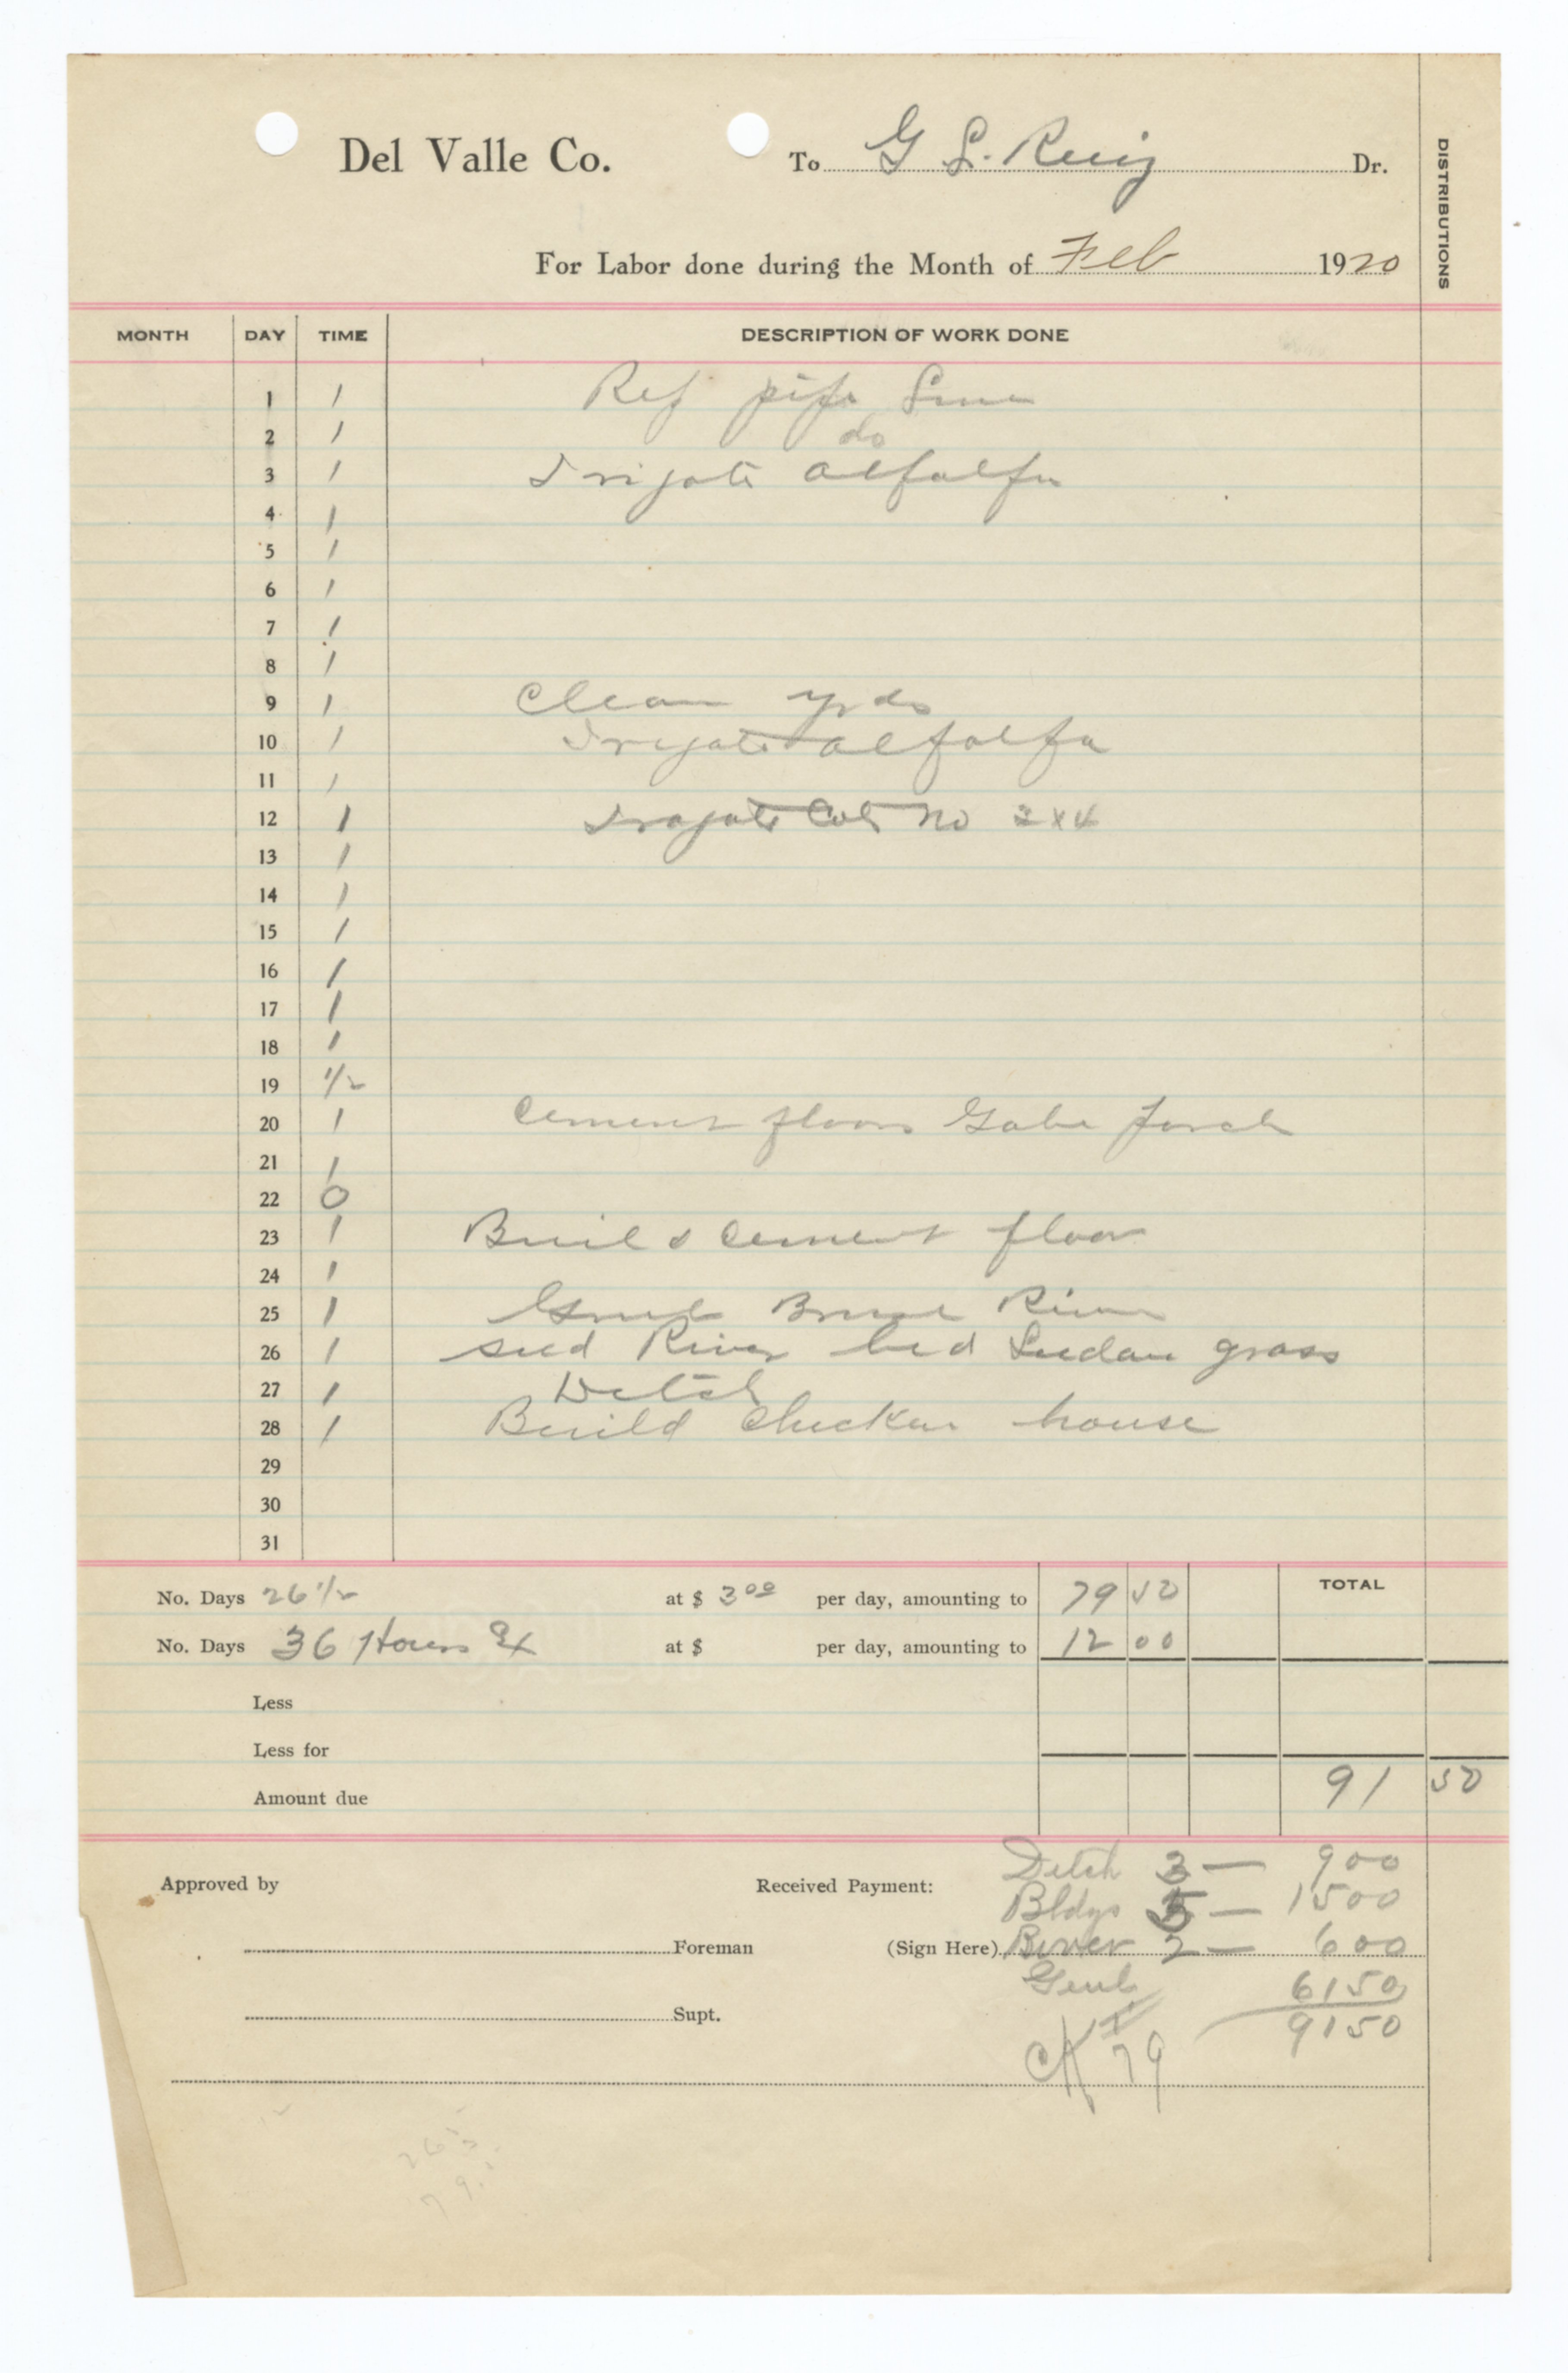 Del Valle Co. To G L. Ruiz Dr.
DISTRIBUTIONS
For Labor done during the Month of Feb 1920
MONTH DAY TIME DESCRIPTION OF WORK DONE
1 1 Rep pipe Line
2 1 do
3 1 Irigate alfalfa
4 1
5 1
6 1
7 1
8 1
9 1 Clean yrds
10 1 Irigate alfalfa
11 1
12 1 Irigate No 3 x 4
13 1
14 1
15 1
16 1
17 1
18 1
19 1/2
20 1 Cement floor Gabe porch
21 1
22 0
23 1 Build cement floor
24 1
25 1 River
26 1 seed River bed Sudan grass
27 1 Ditch
28 1 Build chicken house
29
30
31
No. Days 26 1/2 at $ 3 00 per day, amounting to 79 50 TOTAL
No. Days 36 Hours Ex at $ per day, amounting to 12 00
Less
Less for
Amount due 91 50
Ditch 3 — 900
Approved by Received Payment:
Bldgs 5 — 1500
Foreman (Sign Here) River 2 — 600
Genl 6150
Supt. 9150
CK 79
265
79.